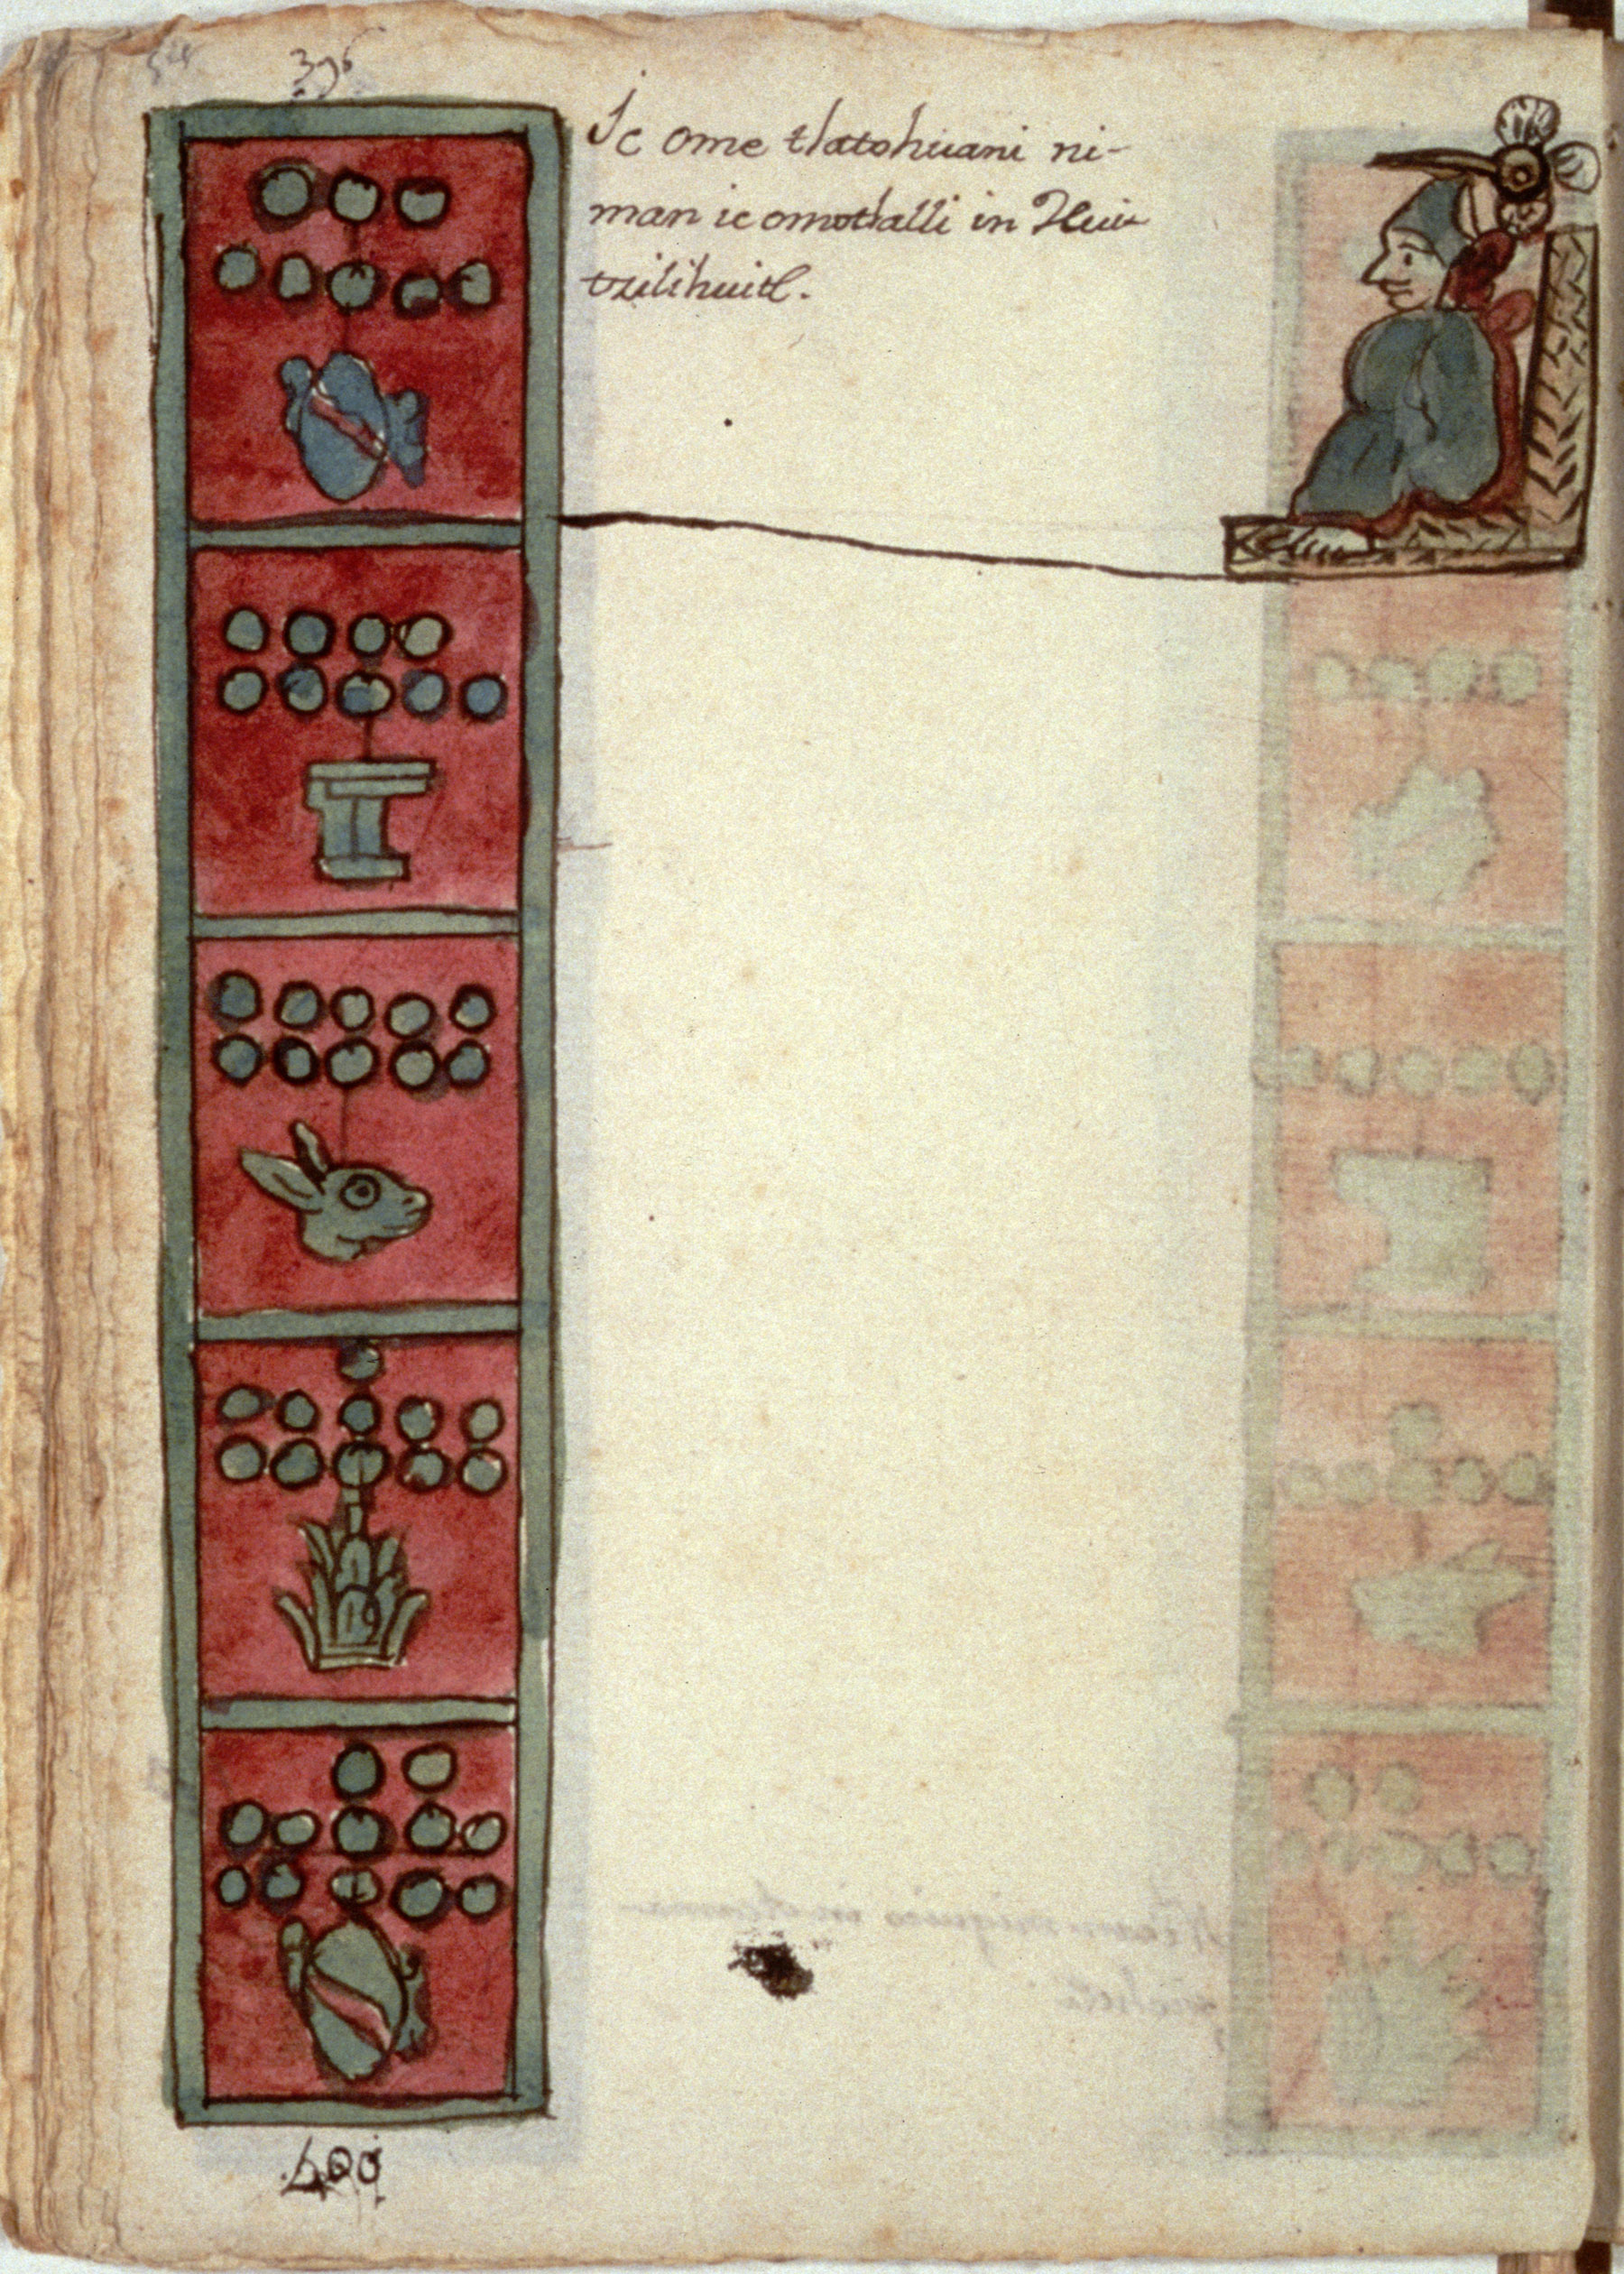 396
Ic ome tlatohuani ni-
man ic omotlalli in Hui-
tzilihuitl.
400